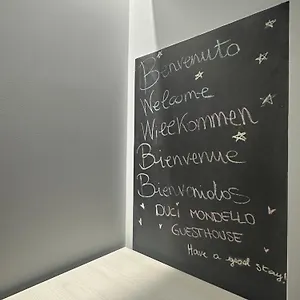 Benvenuto
Welcome
Willkommen
Bienvenue
Bienvenidos
DUCI MONDELLO
GUESTHOUSE
Have a good stay!